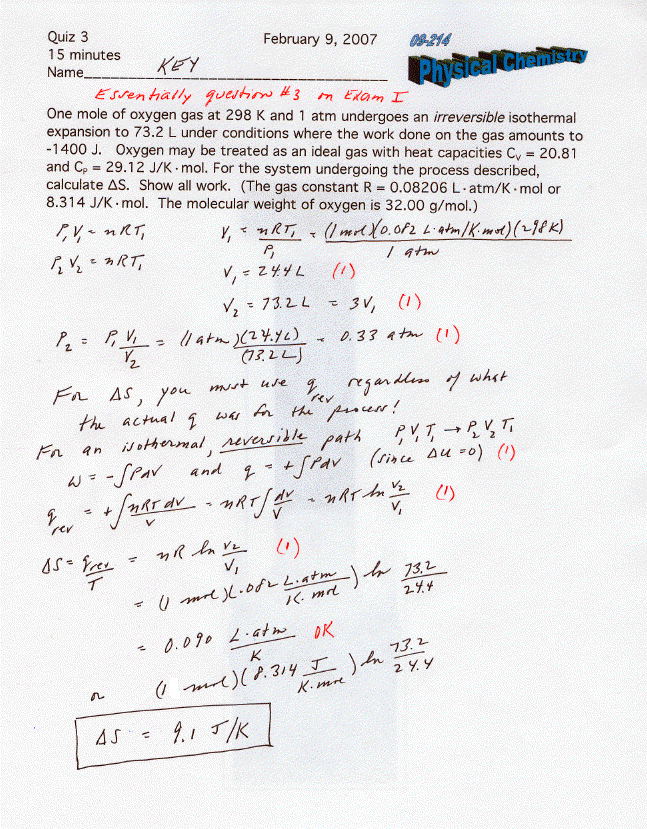 Quiz 3 February 9, 2007 09-214
15 minutes Physical Chemistry
Name KEY
Essentially question #3 on Exam I
One mole of oxygen gas at 298 K and 1 atm undergoes an irreversible isothermal
expansion to 73.2 L under conditions where the work done on the gas amounts to
-1400 J. Oxygen may be treated as an ideal gas with heat capacities Cv = 20.81
and Cp = 29.12 J/K·mol. For the system undergoing the process described,
calculate ΔS. Show all work. (The gas constant R = 0.08206 L·atm/K·mol or
8.314 J/K·mol. The molecular weight of oxygen is 32.00 g/mol.)
P₁V₁ = nRT₁ V₁ = nRT₁/P₁ = (1 mol)(0.082 L·atm/K·mol)(298K)/1 atm
P₂V₂ = nRT₁
V₁ = 24.4 L (1)
V₂ = 73.2 L = 3V₁ (1)
P₂ = P₁V₁/V₂ = (1 atm)(24.4L)/(73.2L) = 0.33 atm (1)
For ΔS, you must use q rev regardless of what
the actual q was for the process!
For an isothermal, reversible path P₁V₁T₁ → P₂V₂T₁
w = -∫PdV and q = +∫PdV (since Δu=0) (1)
q rev = +∫nRT dV/V = nRT∫dV/V = nRT ln V₂/V₁ (1)
ΔS = q rev/T = nR ln V₂/V₁ (1)
= (1 mol)(.082 L·atm/K·mol) ln 73.2/24.4
= 0.090 L·atm/K OK
or (1 mol)(8.314 J/K·mol) ln 73.2/24.4
ΔS = 9.1 J/K